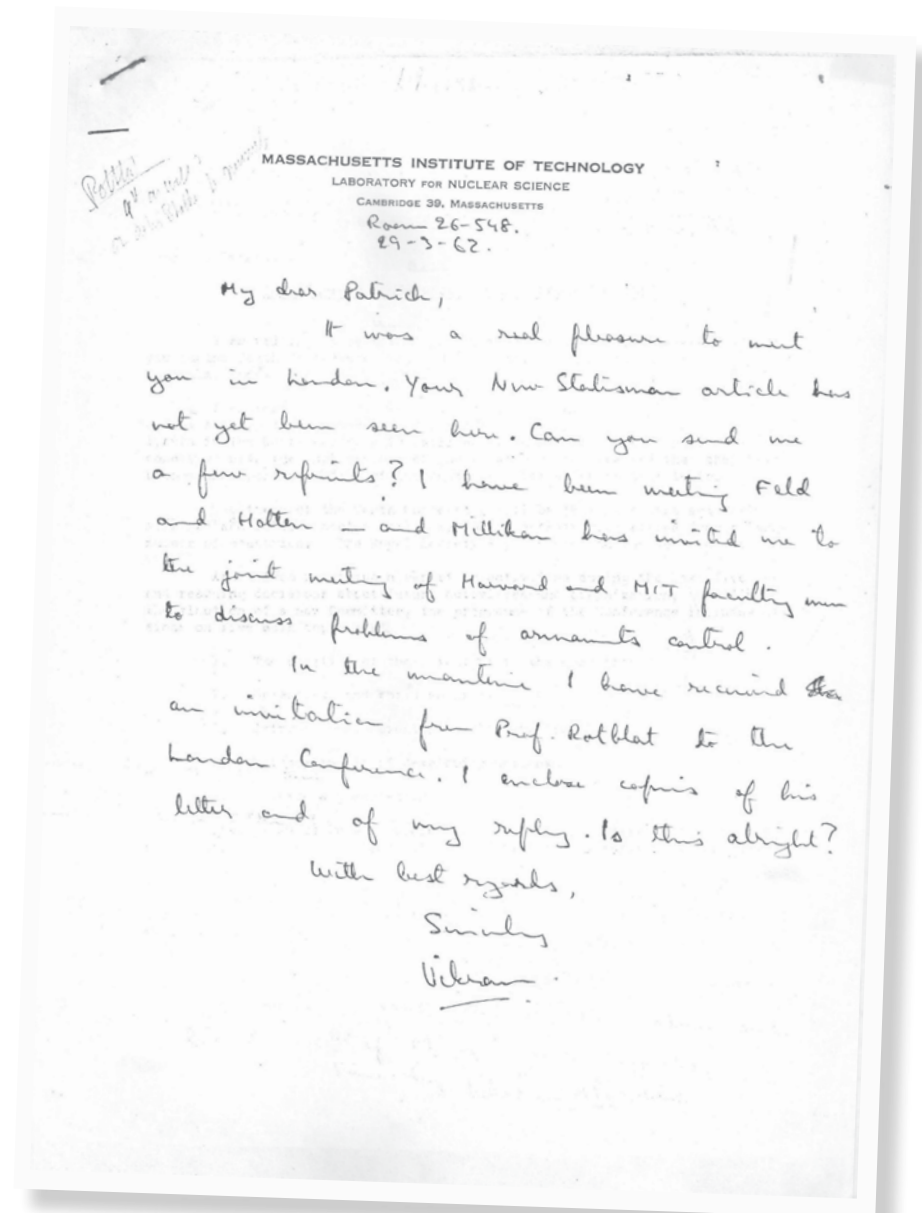 Rotblat
MASSACHUSETTS INSTITUTE OF TECHNOLOGY
LABORATORY FOR NUCLEAR SCIENCE
CAMBRIDGE 39, MASSACHUSETTS
Room 26-548.
29-3-62.
My dear Patrick,
It was a real pleasure to meet
you in London. Your New Statesman article has
not yet been seen here. Can you send me
a few reprints? I have been meeting Feld
and Holten and Millikan has invited me to
the joint meeting of Harvard and M.I.T. faculty men
to discuss problems of armaments control.
In the meantime I have received
an invitation from Prof. Rotblat to the
London Conference. I enclose copies of his
letter and of my reply. Is this alright?
With best regards,
Sincerely
Vikram.